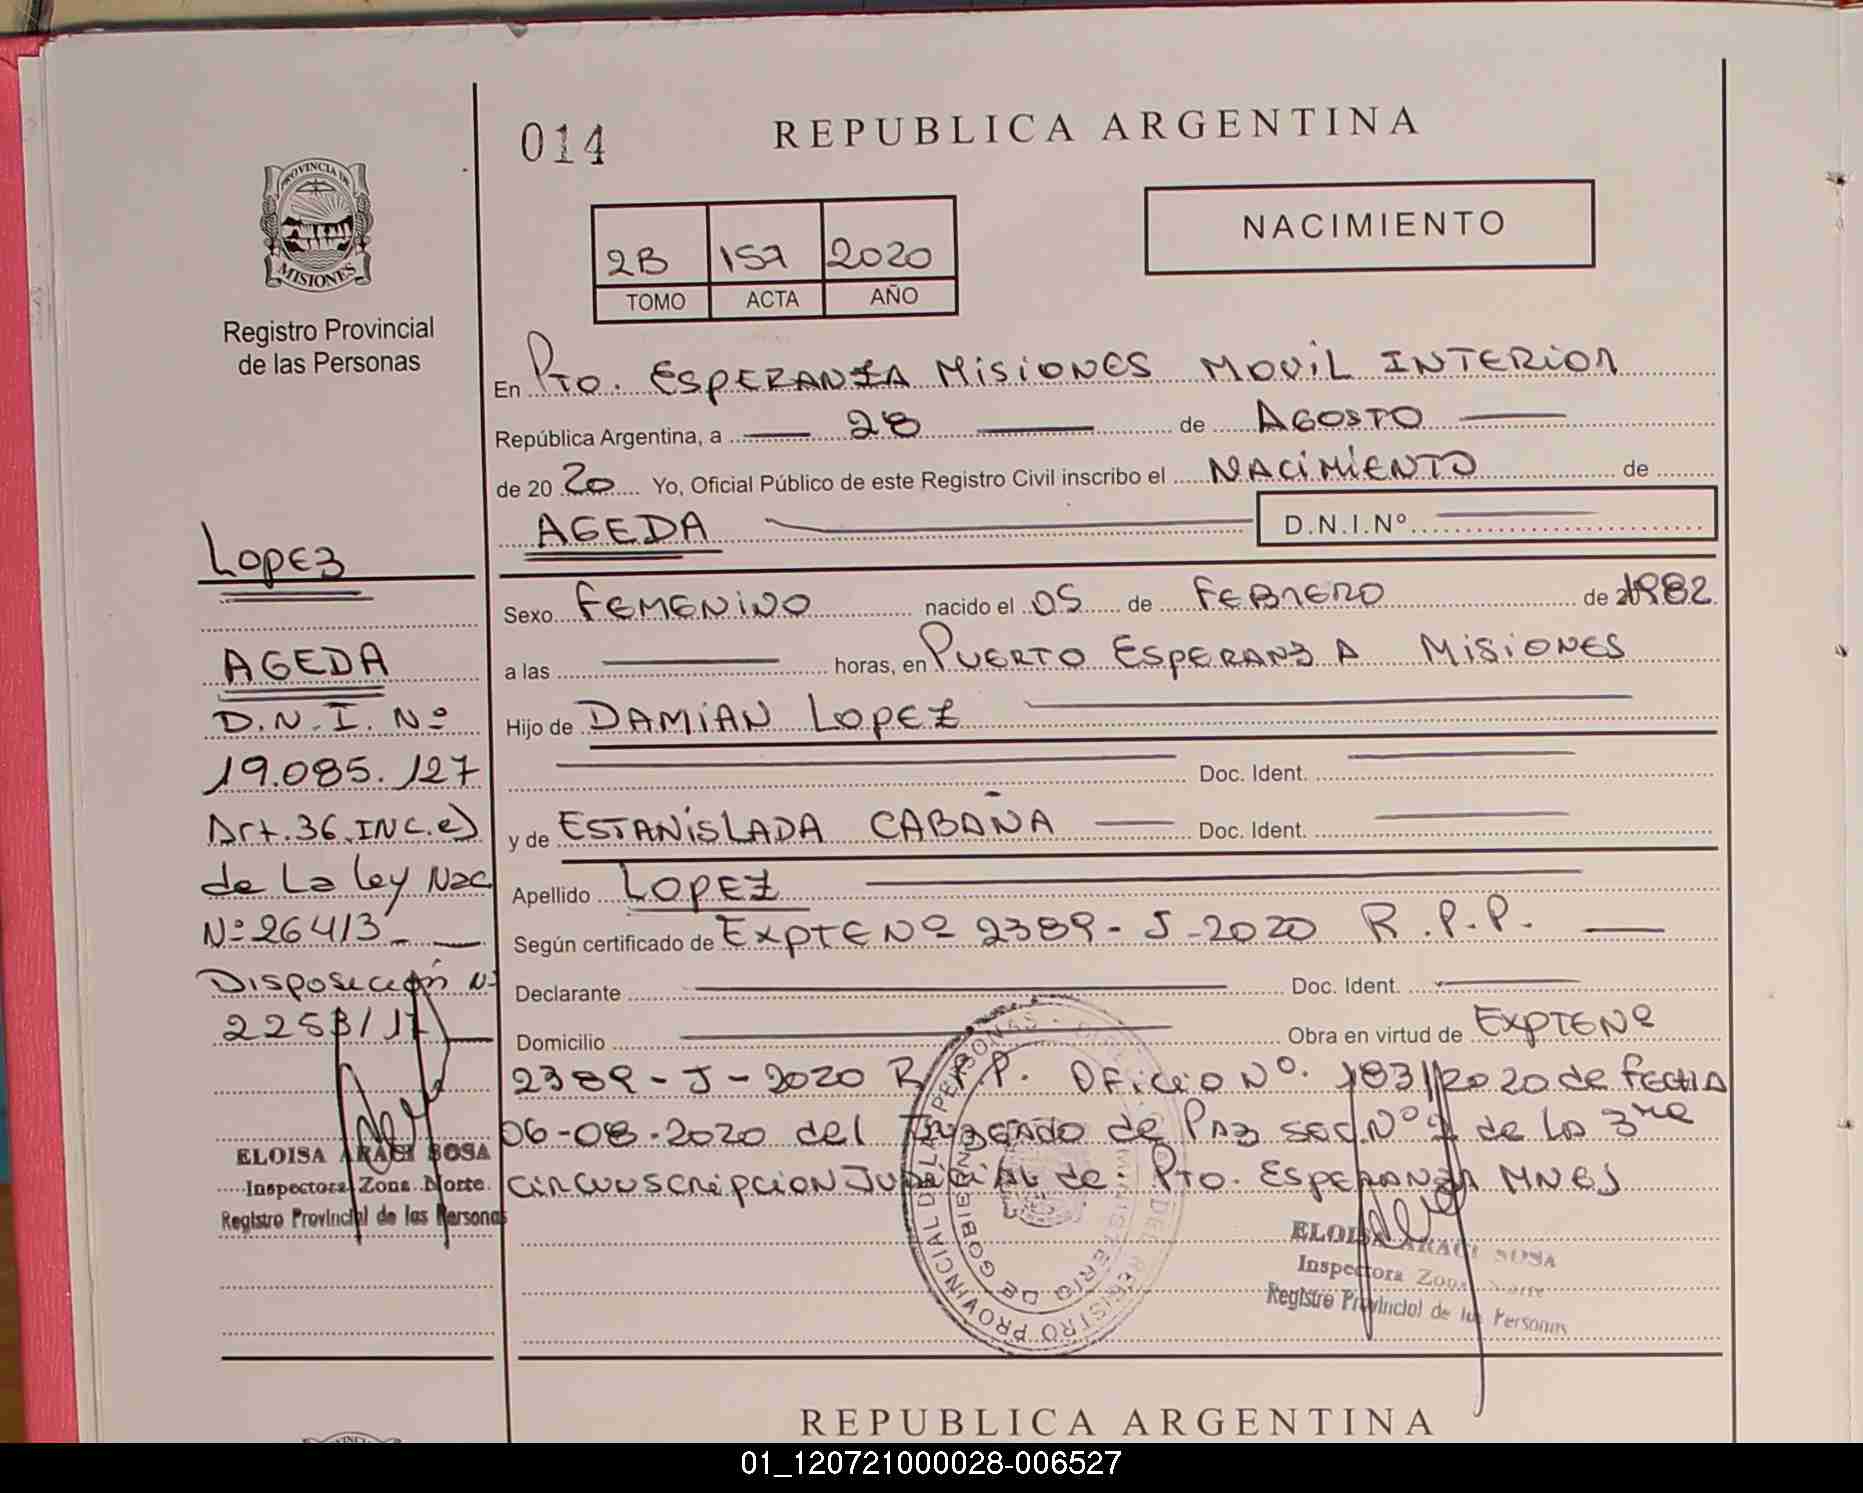 014
REPUBLICA ARGENTINA
PROVINCIA DE
MISIONES
Registro Provincial
de las Personas
2B 157 2020
TOMO ACTA AÑO
NACIMIENTO
En Pto. ESPERANZA MISIONES MOVIL INTERIOR
República Argentina, a 28 de AGOSTO
de 20 20 Yo, Oficial Público de este Registro Civil inscribo el NACIMIENTO de
AGEDA D.N.I.Nº
Sexo FEMENINO nacido el 05 de FEBRERO de 1982
a las horas, en PUERTO ESPERANZA MISIONES
Hijo de DAMIAN LOPEZ
Doc. Ident.
y de ESTANISLADA CABAÑA Doc. Ident.
Apellido LOPEZ
Según certificado de EXPTE Nº 2389-J-2020 R.P.P.
Declarante Doc. Ident.
Domicilio Obra en virtud de EXPTE Nº
2389-J-2020 R.P.P. OFICIO Nº. 1831/2020 de FECHA
06-08-2020 del JUZGADO de PAZ SEC. Nº de la 3
CIRCUNSCRIPCION JUDICIAL de Pto. ESPERANZA MNES
ELOISA ARACI SOSA
Inspectora Zona Norte
Registro Provincial de las Personas
LOPEZ
AGEDA
D.N.I. Nº
19.085.127
Art. 36 INC. e)
de La Ley Nac
Nº 26413
Disposición Nº
2258/17
ELOISA ARACI SOSA
Inspectora Zona Norte
Registro Provincial de las Personas
REGISTRO PROVINCIAL DE LAS PERSONAS
MINISTERIO DE GOBIERNO
REPUBLICA ARGENTINA
01_120721000028-006527